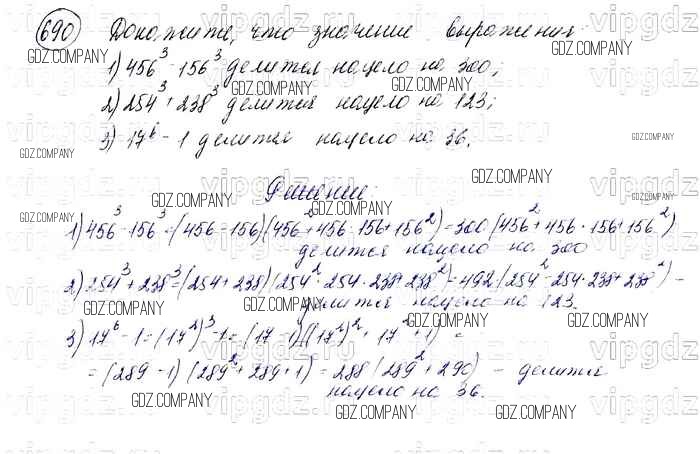 690 Докажите, что значение выражения:
1) 456³ - 156³ делится нацело на 300;
2) 254³ + 238³ делится нацело на 123;
3) 17⁶ - 1 делится нацело на 36.
Решение:
1) 456³ - 156³ = (456 - 156)(456² + 456·156 + 156²) = 300(456² + 456·156 + 156²)
делится нацело на 300
2) 254³ + 238³ = (254 + 238)(254² - 254·238 + 238²) = 492(254² - 254·238 + 238²) -
делится нацело на 123.
3) 17⁶ - 1 = (17²)³ - 1 = (17 - 1)((17²)² + 17² + 1) =
= (289 - 1)(289² + 289 + 1) = 288(289² + 290) - делится
нацело на 36.
GDZ.COMPANY
vipgdz.ru